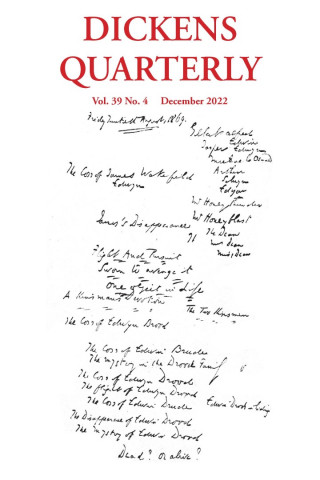 DICKENS
QUARTERLY
Vol. 39 No. 4 December 2022
Friday Twentieth August, 1869.
Gilbert Alfred
Edwin
Jasper Edwyn
Michael Oswald
The Loss of James Wakefield
Arthur
Edwyn
Selwyn
Edgar
Mr Honeythunder
Mr Honeyblast
James's Disappearance
The Dean
Mrs Dean
Miss Dean
Flight And Pursuit
Sworn to avenge it
One Object in Life
A Kinsman's Devotion
The Two Kinsmen
The Loss of Edwyn Brood
The Loss of Edwin Brude
The Mystery in the Drood Family
The Loss of Edwyn Drood
The flight of Edwyn Drood
Edwin Drood in hiding
The Loss of Edwin Drude
The Disappearance of Edwin Drood
The Mystery of Edwin Drood
Dead? or alive?